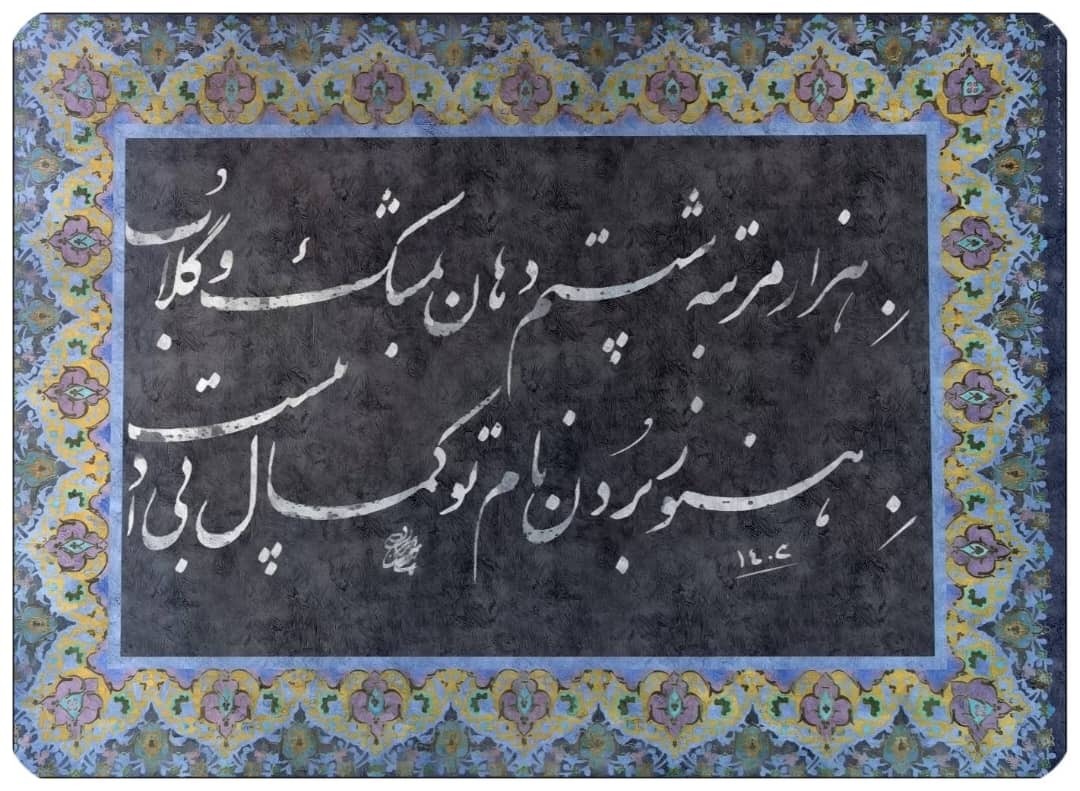 هزار مرتبه شستم دهان بمشک و گلاب
هنوز بُردن نام تو کمال بی ادبیست
١٤٠٢